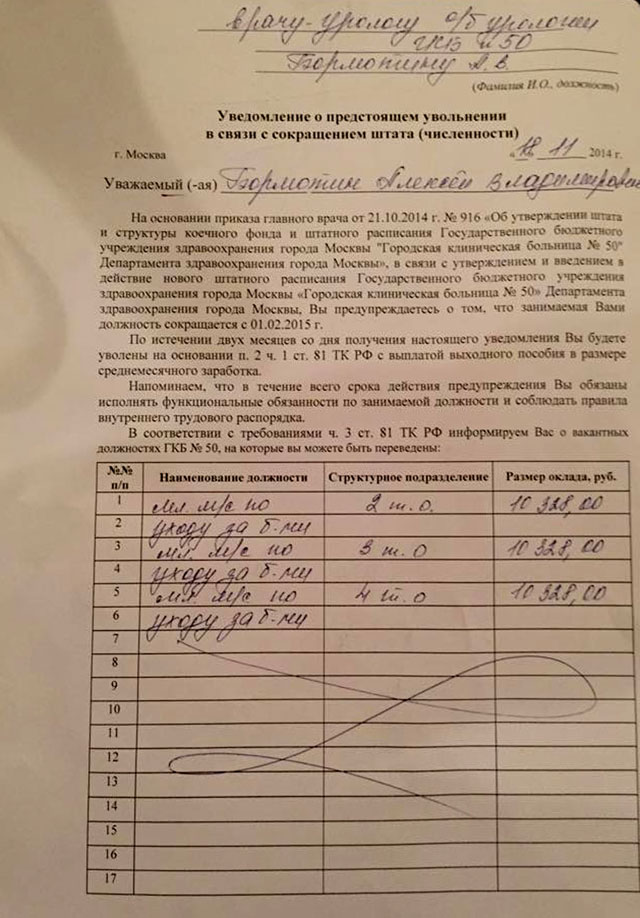 врачу-урологу о/б урологии
ГКБ № 50
Бормотину А.В.
(Фамилия И.О., должность)
Уведомление о предстоящем увольнении
в связи с сокращением штата (численности)
г. Москва «18» 11 2014 г.
Уважаемый (-ая) Бормотин Алексей Владимирович
На основании приказа главного врача от 21.10.2014 г. № 916 «Об утверждении штата
и структуры коечного фонда и штатного расписания Государственного бюджетного
учреждения здравоохранения города Москвы "Городская клиническая больница № 50"
Департамента здравоохранения города Москвы», в связи с утверждением и введением в
действие нового штатного расписания Государственного бюджетного учреждения
здравоохранения города Москвы «Городская клиническая больница № 50» Департамента
здравоохранения города Москвы, Вы предупреждаетесь о том, что занимаемая Вами
должность сокращается с 01.02.2015 г.
По истечении двух месяцев со дня получения настоящего уведомления Вы будете
уволены на основании п. 2 ч. 1 ст. 81 ТК РФ с выплатой выходного пособия в размере
среднемесячного заработка.
Напоминаем, что в течение всего срока действия предупреждения Вы обязаны
исполнять функциональные обязанности по занимаемой должности и соблюдать правила
внутреннего трудового распорядка.
В соответствии с требованиями ч. 3 ст. 81 ТК РФ информируем Вас о вакантных
должностях ГКБ № 50, на которые вы можете быть переведены:
№№ п/п Наименование должности Структурное подразделение Размер оклада, руб.
1 мл. м/с по 2 т.о. 10 328,00
2 уходу за б-ми
3 мл. м/с по 3 т.о 10 328,00
4 уходу за б-ми
5 мл. м/с по 4 т.о 10 328,00
6 уходу за б-ми
7
8
9
10
11
12
13
14
15
16
17